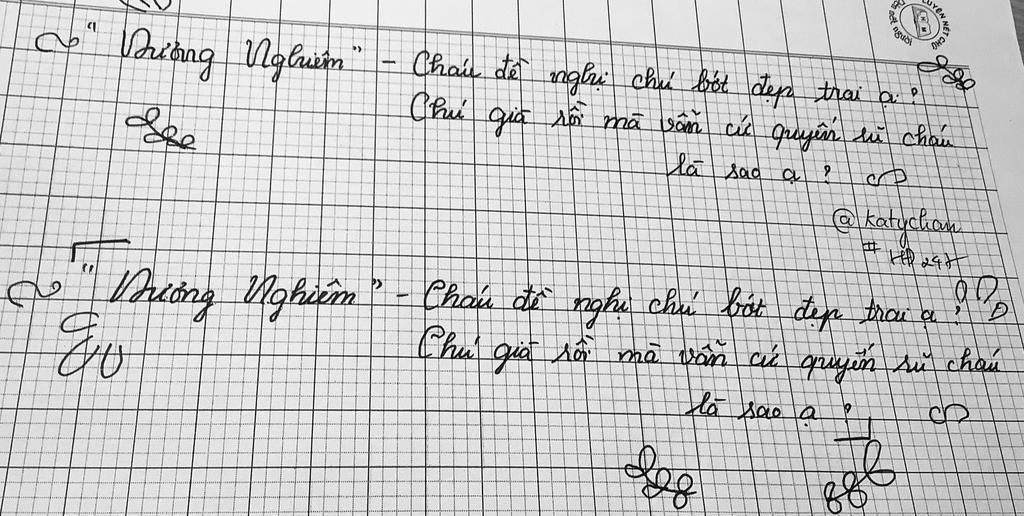 "Dương Nghiêm" - Cháu đề nghị chú bớt đẹp trai ạ?
Chú già rồi mà vẫn cứ quyến rũ cháu
là sao ạ?
@katychan
"Dương Nghiêm" - Cháu đề nghị chú bớt đẹp trai ạ?
Chú già rồi mà vẫn cứ quyến rũ cháu
là sao ạ?